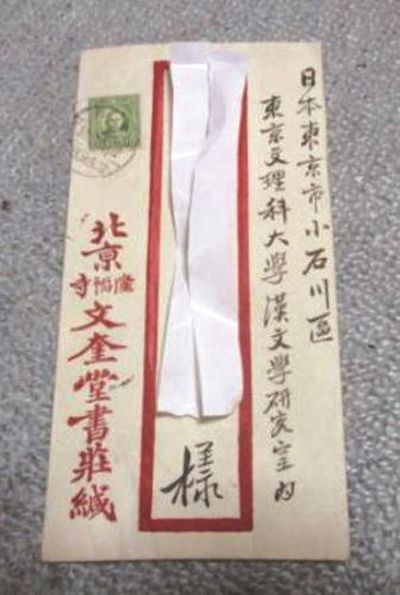 日本東京市小石川區
東京文理科大學漢文學研究室内
様
北京
隆福寺
文奎堂書莊緘